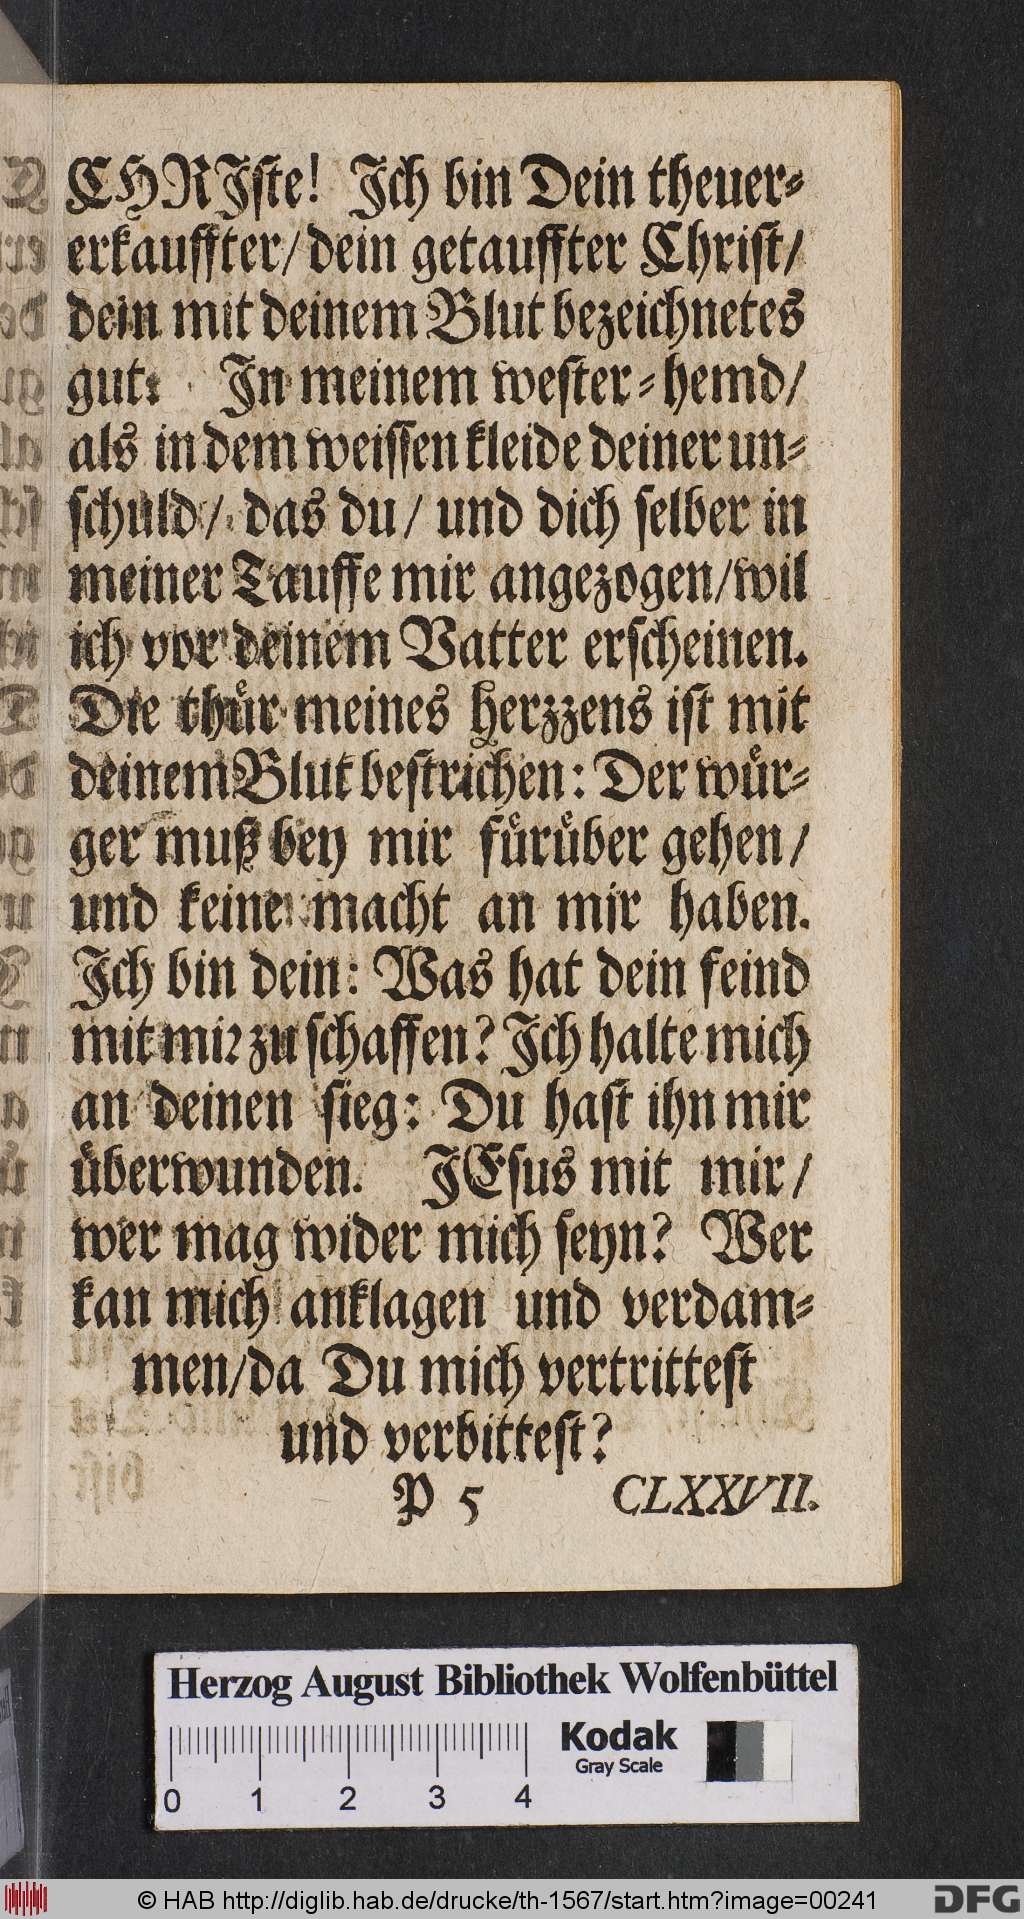 CHRJſte! Jch bin Dein theuer-
erkauffter/ dein getauffter Chriſt/
dein mit deinem Blut bezeichnetes
gut: Jn meinem weſter-hemd/
als in dem weiſſen kleide deiner un-
ſchuld/ das du/ und dich ſelber in
meiner Tauffe mir angezogen/ wil
ich vor deinem Vatter erſcheinen.
Die thuͤr meines herzzens iſt mit
deinem Blut beſtrichen: Der wuͤr-
ger muß bey mir fuͤruͤber gehen/
und keine macht an mir haben.
Jch bin dein: Was hat dein feind
mit miꝛ zu ſchaffen? Jch halte mich
an deinen ſieg: Du haſt ihn mir
uͤberwunden. JEſus mit mir/
wer mag wider mich ſeyn? Wer
kan mich anklagen und verdam-
men/ da Du mich vertritteſt
und verbitteſt?
P 5 CLXXVII.
Herzog August Bibliothek Wolfenbüttel
Kodak
Gray Scale
0 1 2 3 4
© HAB http://diglib.hab.de/drucke/th-1567/start.htm?image=00241
DFG